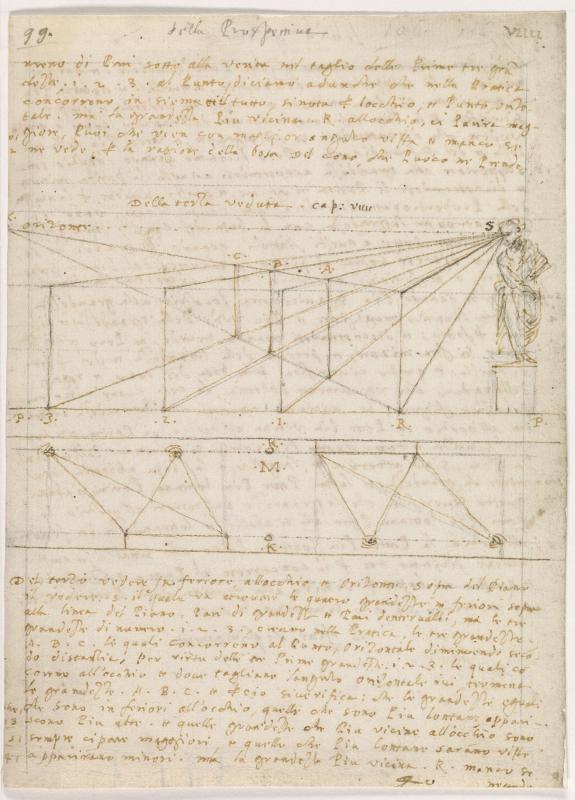 99. della Prospettiua VIIII
meno di Pari sotto alla ueduta nel taglio delle Prime tre gran
dezze. 1. 2. 3. al Punto, diciamo adunche che nella Pratica
concorreno, in sieme il tutto,
tale. ma la grandezza Piu vicina. R. all occhio, ci Parira mag
giore, Puoi che vien con maggior angulo vista et manco se
ne vede. Per la ragione della basa del cono che Puoco ne Prende.
Della terza veduta. cap: VIIII
orizonte
S
C. B. A.
P. 3. 2. 1. R. P.
K.
M.
K
Del terzo vedere In feriore, all occhio et Orizonte, sopra del Piano
il vedere. S. il quale va a trovare le quatro grandezze in feriori sopra
alla linea del Piano. Pari di grandezze et Pari d'intervalli, ma le tre
grandezze di numero. 1. 2. 3. creano nella Pratica, le tre grandezze.
A. B. C. le quali concorreno al Punto, Orizontale diminuendo seco-
do distantia, per virtu delle tre Prime grandezze. 1. 2. 3. le quali co-
correno all occhio et doue tagliano l angulo orizontale iui termina-
le grandezze. A. B. C. et Per cio si uerifica: che le grandezze equali
che sono in feriori all occhio, quelle che sono Piu lontane appari-
scono Piu alte. et quelle grandezze che Piu vicine all occhio sono
sempre ci pare maggiori, et quelle che Piu lontane sarano viste
appariranno minori. ma la grandezza Piu vicina. R. manco se